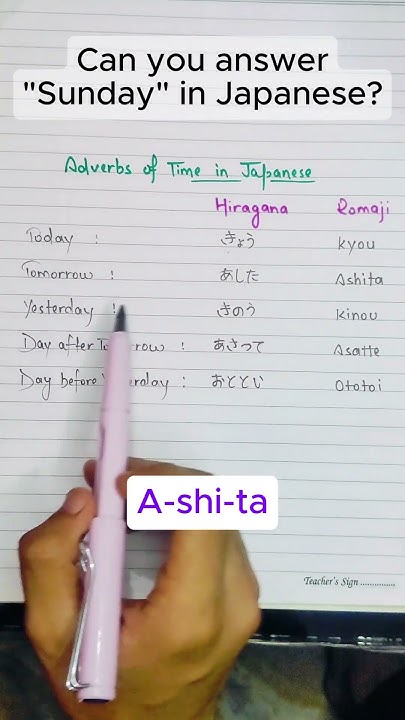 Can you answer
"Sunday" in Japanese?
Adverbs of Time in Japanese
Hiragana Romaji
Today : きょう kyou
Tomorrow : あした Ashita
Yesterday : きのう Kinou
Day after Tomorrow : あさって Asatte
Day before Yesterday : おととい Ototoi
A-shi-ta
Teacher's Sign ..............